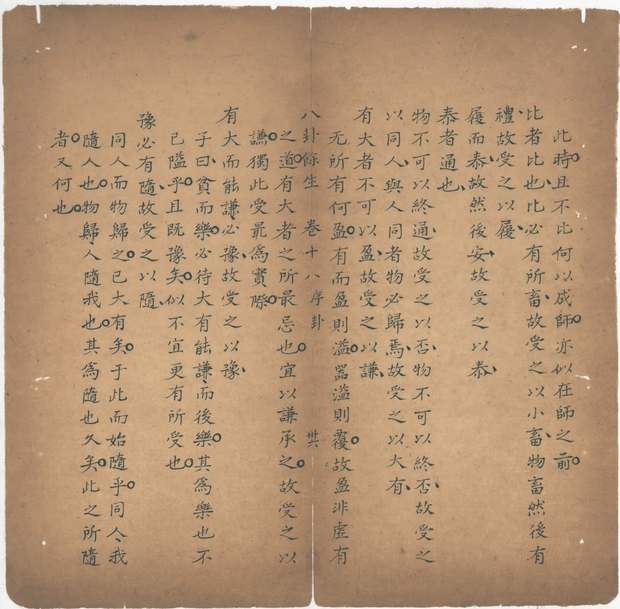 此時且不比何以成師亦似在師之前
比者比也比必有所畜故受之以小畜物畜然後有
禮故受之以履
履而泰故然後安故受之以泰
泰者通也
物不可以終通故受之以否物不可以終否故受之
以同人與人同者物必歸焉故受之以大有
有大者不可以盈故受之以謙
无所有何盈有而盈則溢器溢則覆故盈非虛有
八卦餘生 卷十八序卦
之道有大者之所最忌也宜以謙承之故受之以
謙獨此受最為實際
有大而能謙必豫故受之以豫
子曰貧而樂必待大有能謙而後樂其為樂也不
已隘乎且既豫矣似不宜更有所受也
豫必有隨故受之以隨
同人而物歸之已大有矣于此而始隨乎同人我
隨人也物歸人隨我也其為隨也久矣此之所隨
者又何也